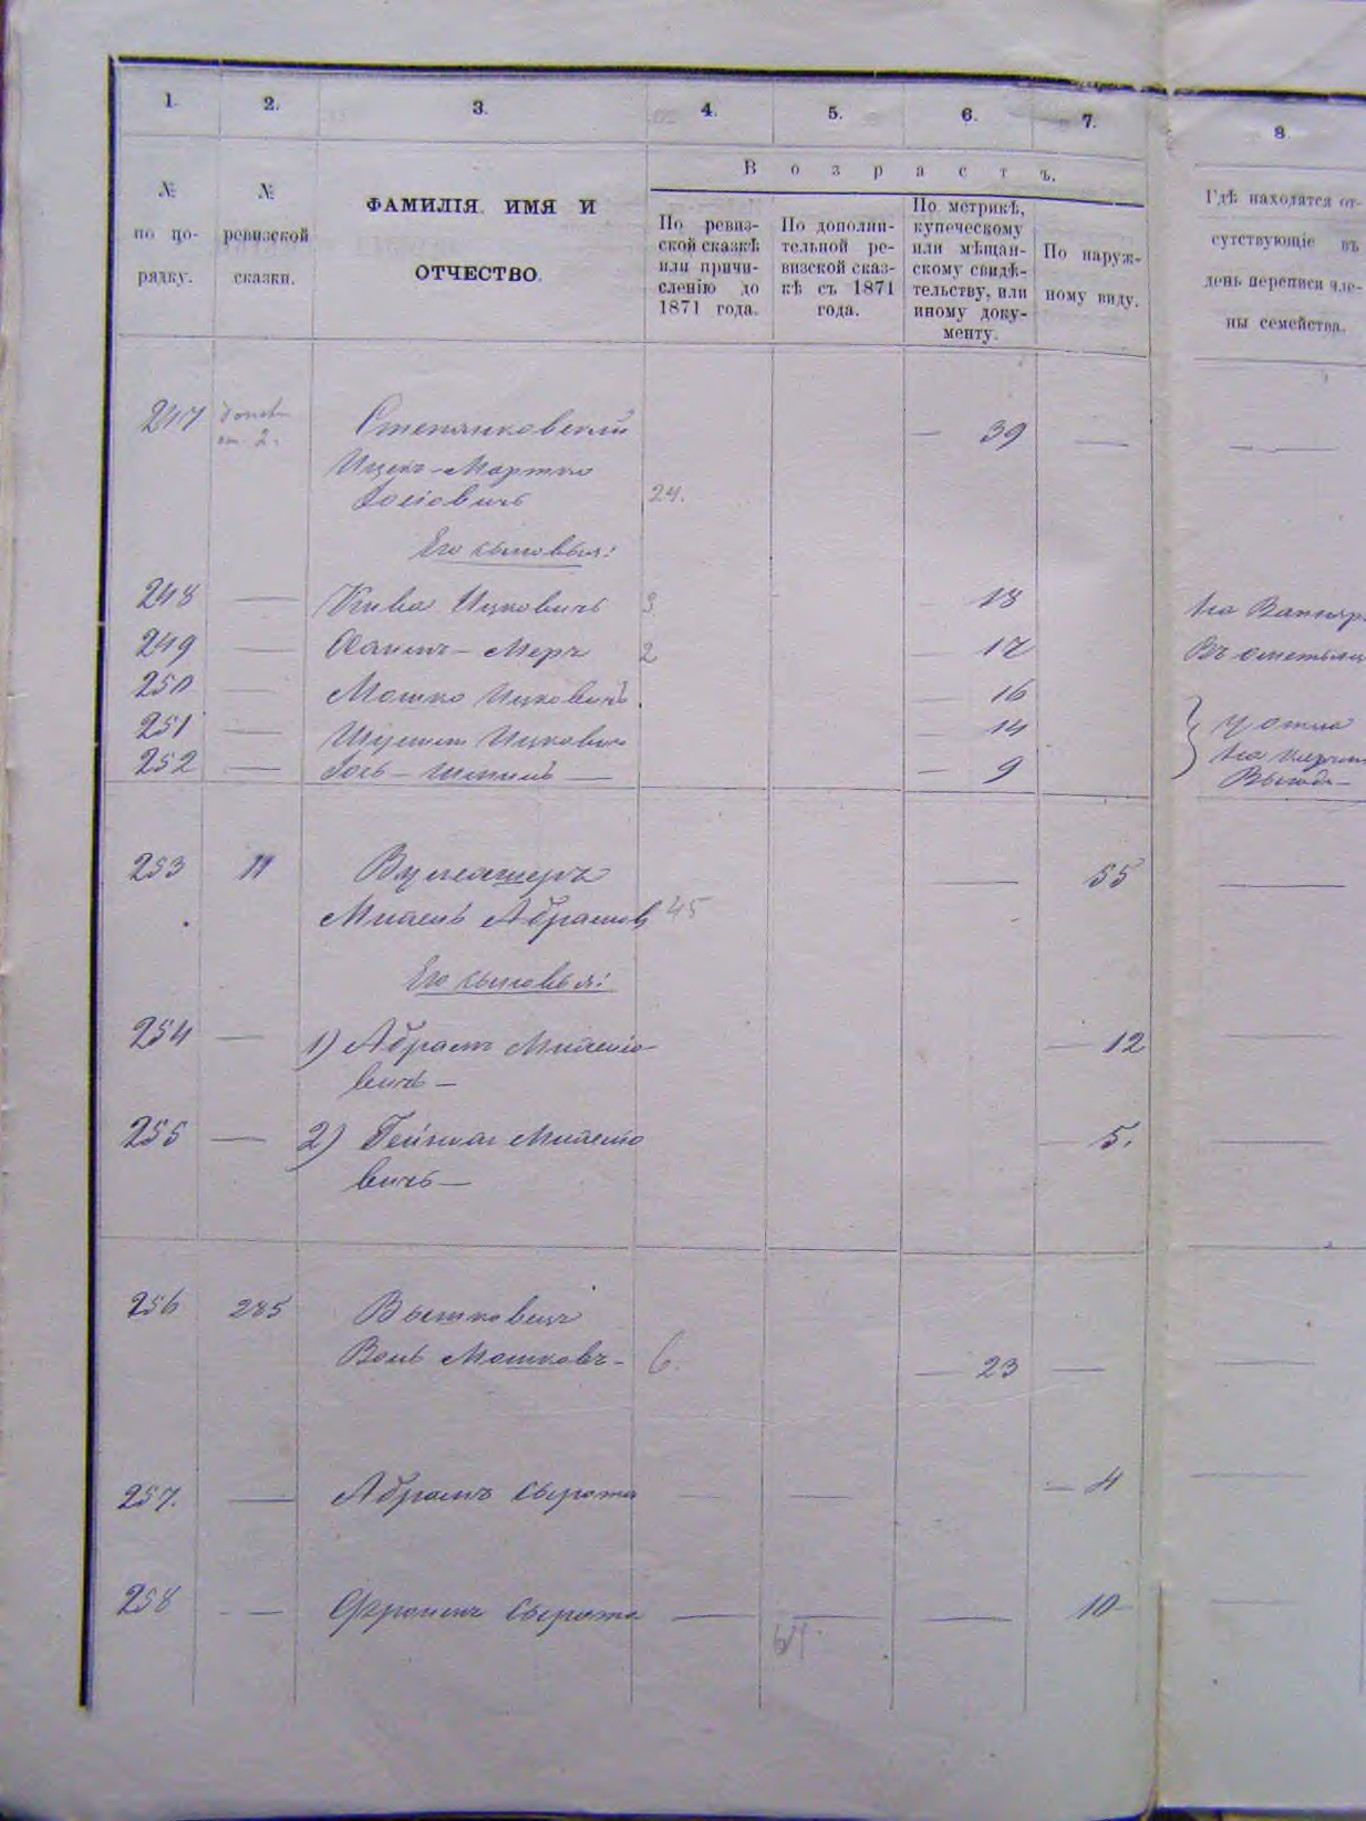 1. 2. 3. 4. 5. 6. 7. 8.
Возрастъ.
№ по порядку.
№ ревизской сказки.
ФАМИЛІЯ, ИМЯ И
ОТЧЕСТВО.
По ревиз-
ской сказкѣ
или причи-
сленію до
1871 года.
По дополни-
тельной ре-
визской сказ-
кѣ съ 1871
года.
По метрикѣ,
купеческому
или мѣщан-
скому свидѣ-
тельству, или
иному доку-
менту.
По наруж-
ному виду.
Гдѣ находятся от-
сутствующіе въ
день переписи чле-
ны семейства.
247 Степанковскій — 39 —
Ицекъ-Мортко
Іосіовичъ 24.
Его сыновья:
248 — Кива Ицковичъ 3 — 18
249 — Хаимъ-Меръ 2 — 17 Въ
250 — Мошко Ицковичъ — 16
251 — Ицковичъ — 14 у отца
252 — — 9
253 11 — 55 —
Абрамов 45
Его сыновья:
254 — 1) Абрамъ — 12 —
вичъ —
255 — 2) — 5. —
вичъ —
256 285 Вышковецъ
Волъ Мошковъ — 6. — 23 — —
257. — Абрамъ сирота — — — 4 —
258 — Фроимъ сирота — — — 10 —
64